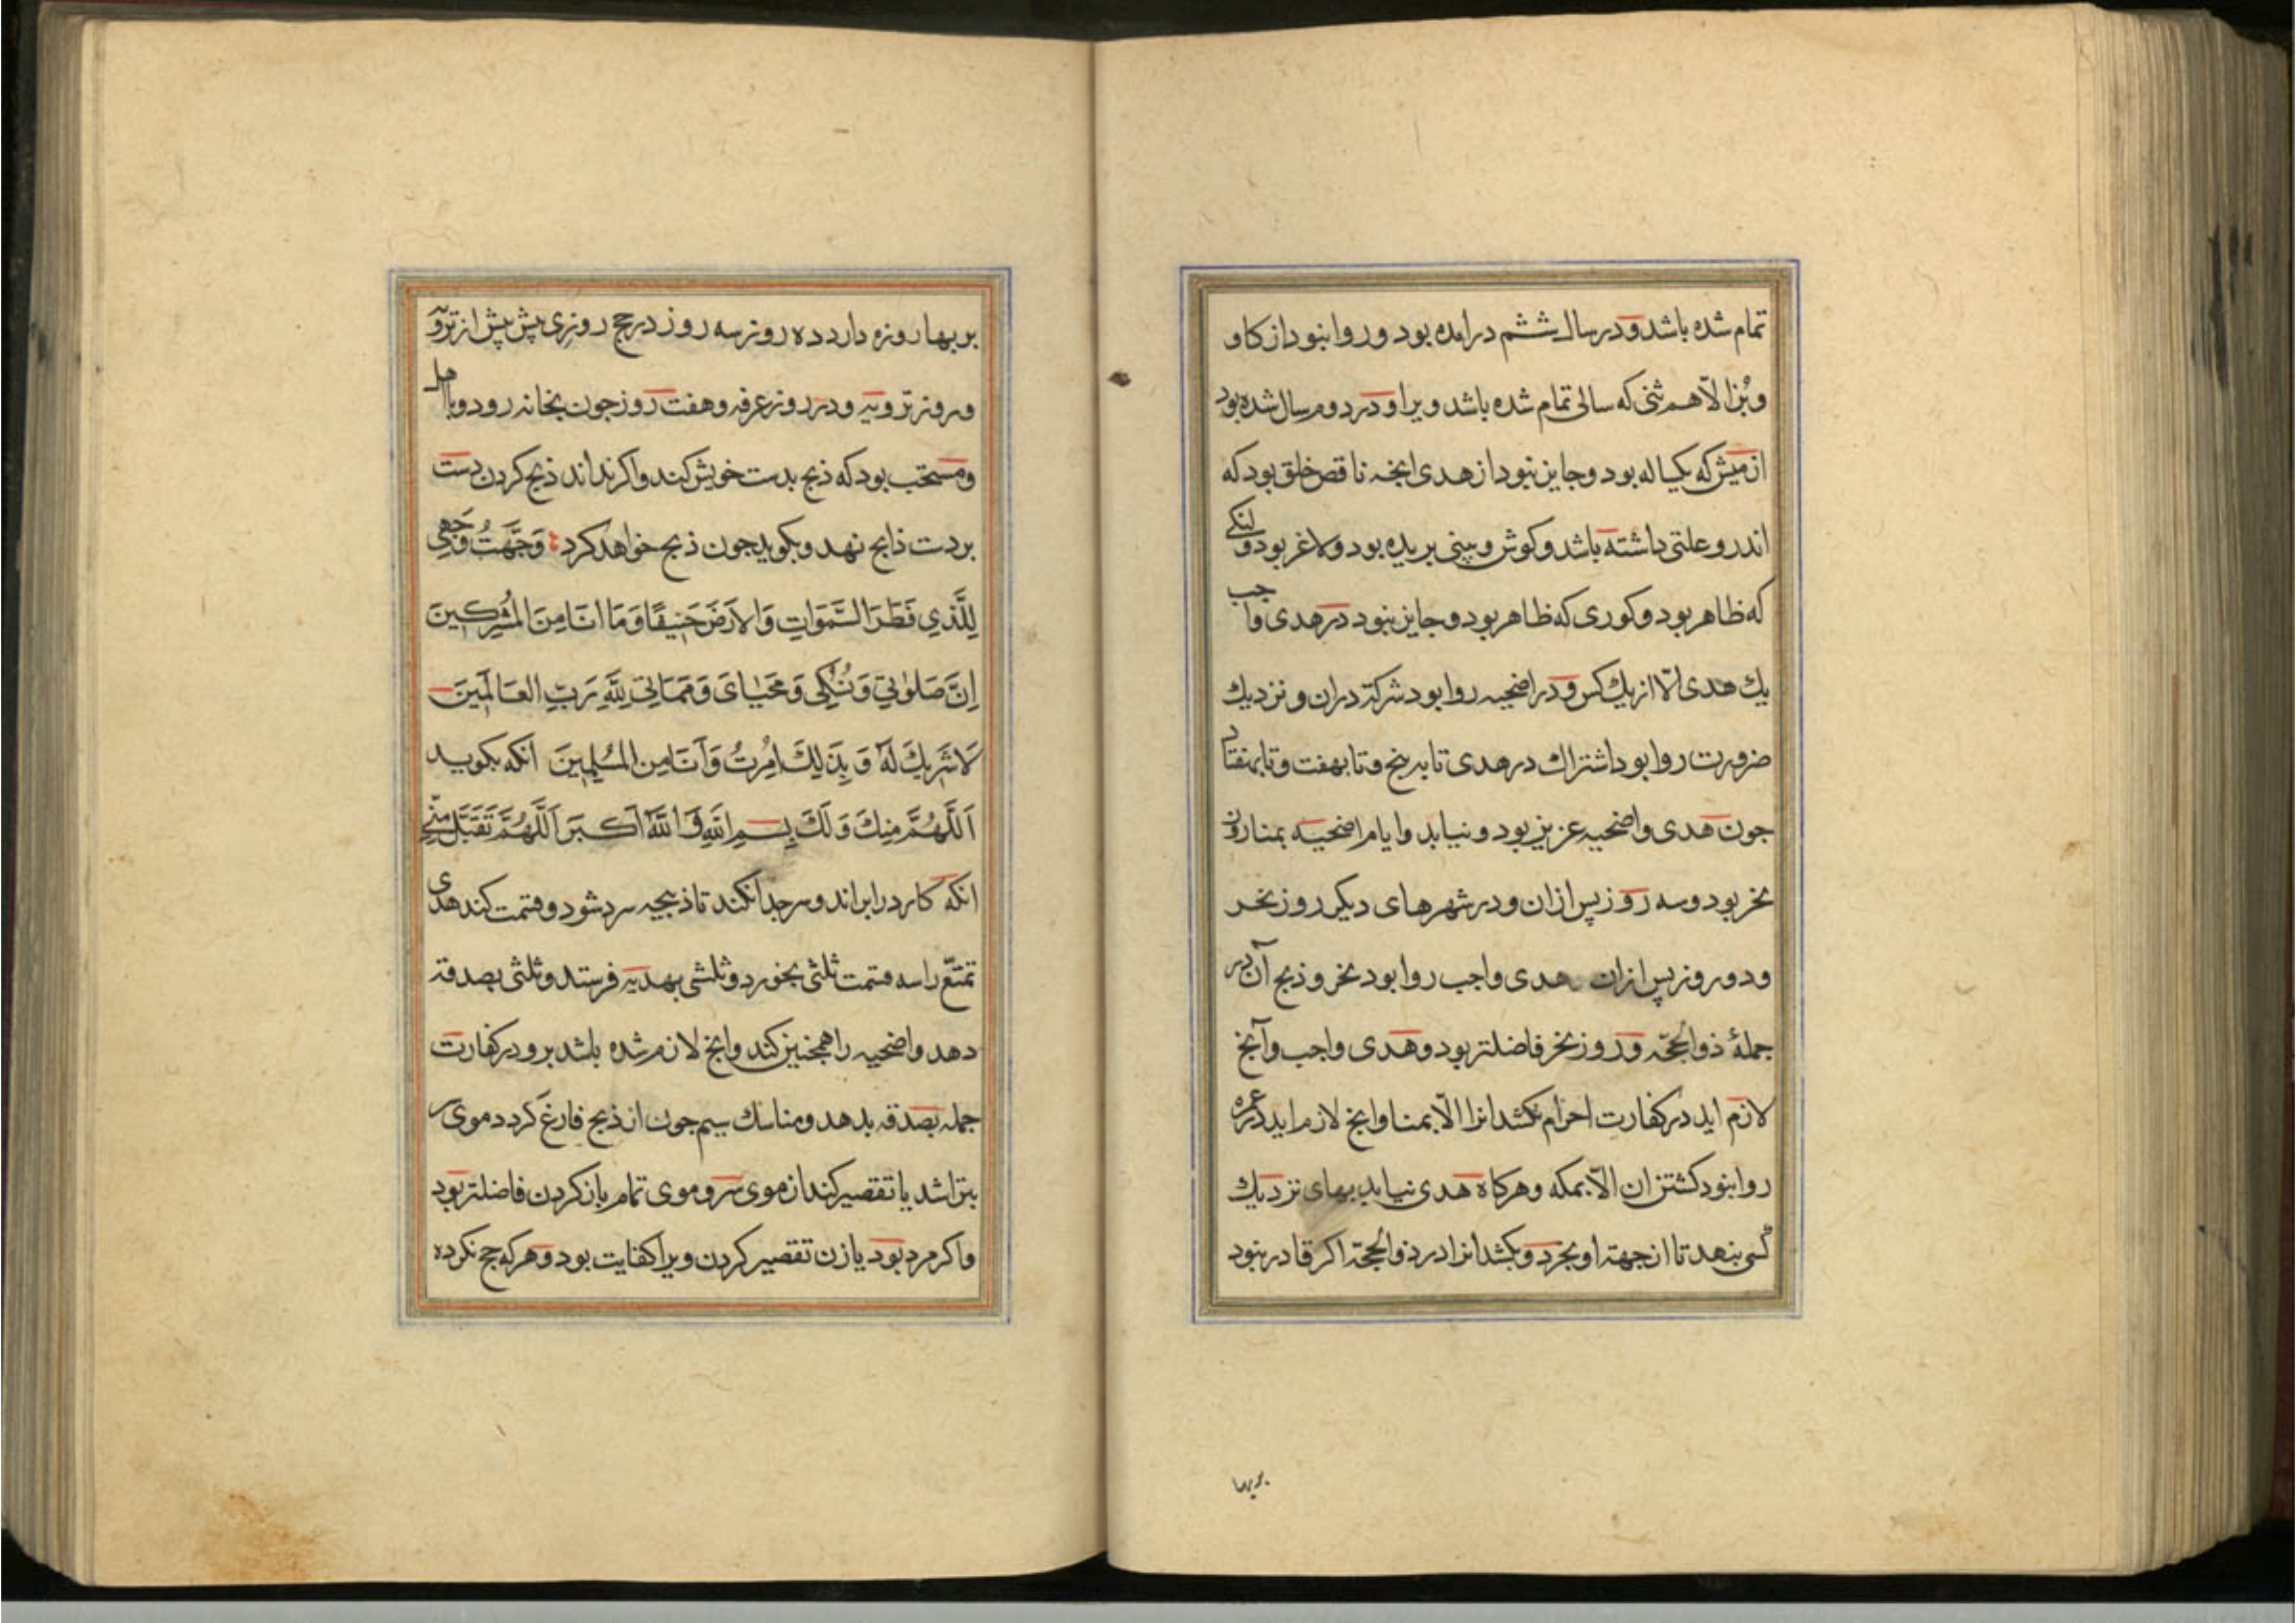 تمام شده باشد و در سال ششم درامده بود و روا نبود از کاو
و بُز الّا هم ثنی که سالی تمام شده باشد ویرا و در دوم سال شده بود
از میش که یکساله بود و جایز نبود از هدی انچه ناقص خلق بود که
اندرو علتی داشته باشد و کوش و بینی بریده بود و لاغر بود و لنکی
که ظاهر بود و کوری که ظاهر بود و جایز نبود در هدی واجب
یك هدی الّا از یك کس و در اضحیه روا بود شرکة دران و نزدیك
ضرورت روا بود اشتراك در هدی تا به پنج و تا بهفت و تا بهفتاد
جون هدی و اضحیه عزیز بود و نیابد و ایام اضحیه بمنا روز
نحر بود و سه روز پس ازان و در شهرهای دیکر روز نحر
و دو روز پس ازان هدی واجب روا بود نحر و ذبح آن در
جملهٔ ذوالحجّه و روز نحر فاضلتر بود و هدی واجب و آنچ
لازم اید در کفارت احرام نکشد انرا الّا بمنا و انچ لازم اید در عمره
روا نبود کشتن ان الّا بمکه و هرکاه هدی نیابد بهای نزدیك
کسی بنهد تا از جهة او بخرد و بکشد انرا در ذوالحجّة اکر قادر نبود
بربها
بر بها روزه دارد ده روز سه روز در حج روزی پش پش از ترو
و روز ترویه و در روز عرفه و هفت روز جون بخانه رود وبااهل
و مستحب بود که ذبح بدست خویش کند و اکر نداند ذبح کردن دست
بر دست ذابح نهد و بکوید جون ذبح خواهد کرد وَجَّهَتُ وَجَهِي
لِلَّذي فَطَرَ السَّمَوَاتِ وَالاَرَضَ حَنِيفًا وَمَا انَا مِنَ المُشِركِينَ
اِنَّ صَلَوٰتِي وَنُسُكِي وَمَحيَايَ وَمَمَاتِي لِلَّهِ رَبِّ العَالَمَينَ
لَا شَرِيكَ لَهُ وَبِذَالِكَ اُمِرتُ وَاَنَا مِنَ المُسُلِمِينَ انکه بکوید
اَللَّهُمَّ مِنكَ وَلَكَ بِسمِ اللَّهِ وَ اللَّهُ اَكبَر اَللَّهُمَّ تَقَبَّل مِنّي
انکه کارد را براند و سر جدا نکند تا ذبیحه سرد شود و قسمت کند هدی
تمتّع را سه قسمت ثلثی بخورد و ثلثی بهدیه فرستد و ثلثی بصدقه
دهد و اضحیه را همجنین کند و انچ لازم شده باشد برو در کفارت
جمله بصدقه بدهد و مناسك سیم جون از ذبح فارغ کردد موی سر
بتراشد یا تقصیر کند از موی سر و موی تمام باز کردن فاضلتر بود
و اکر مرد بود یا زن تقصیر کردن ویرا کفایت بود و هر که حج نکرده